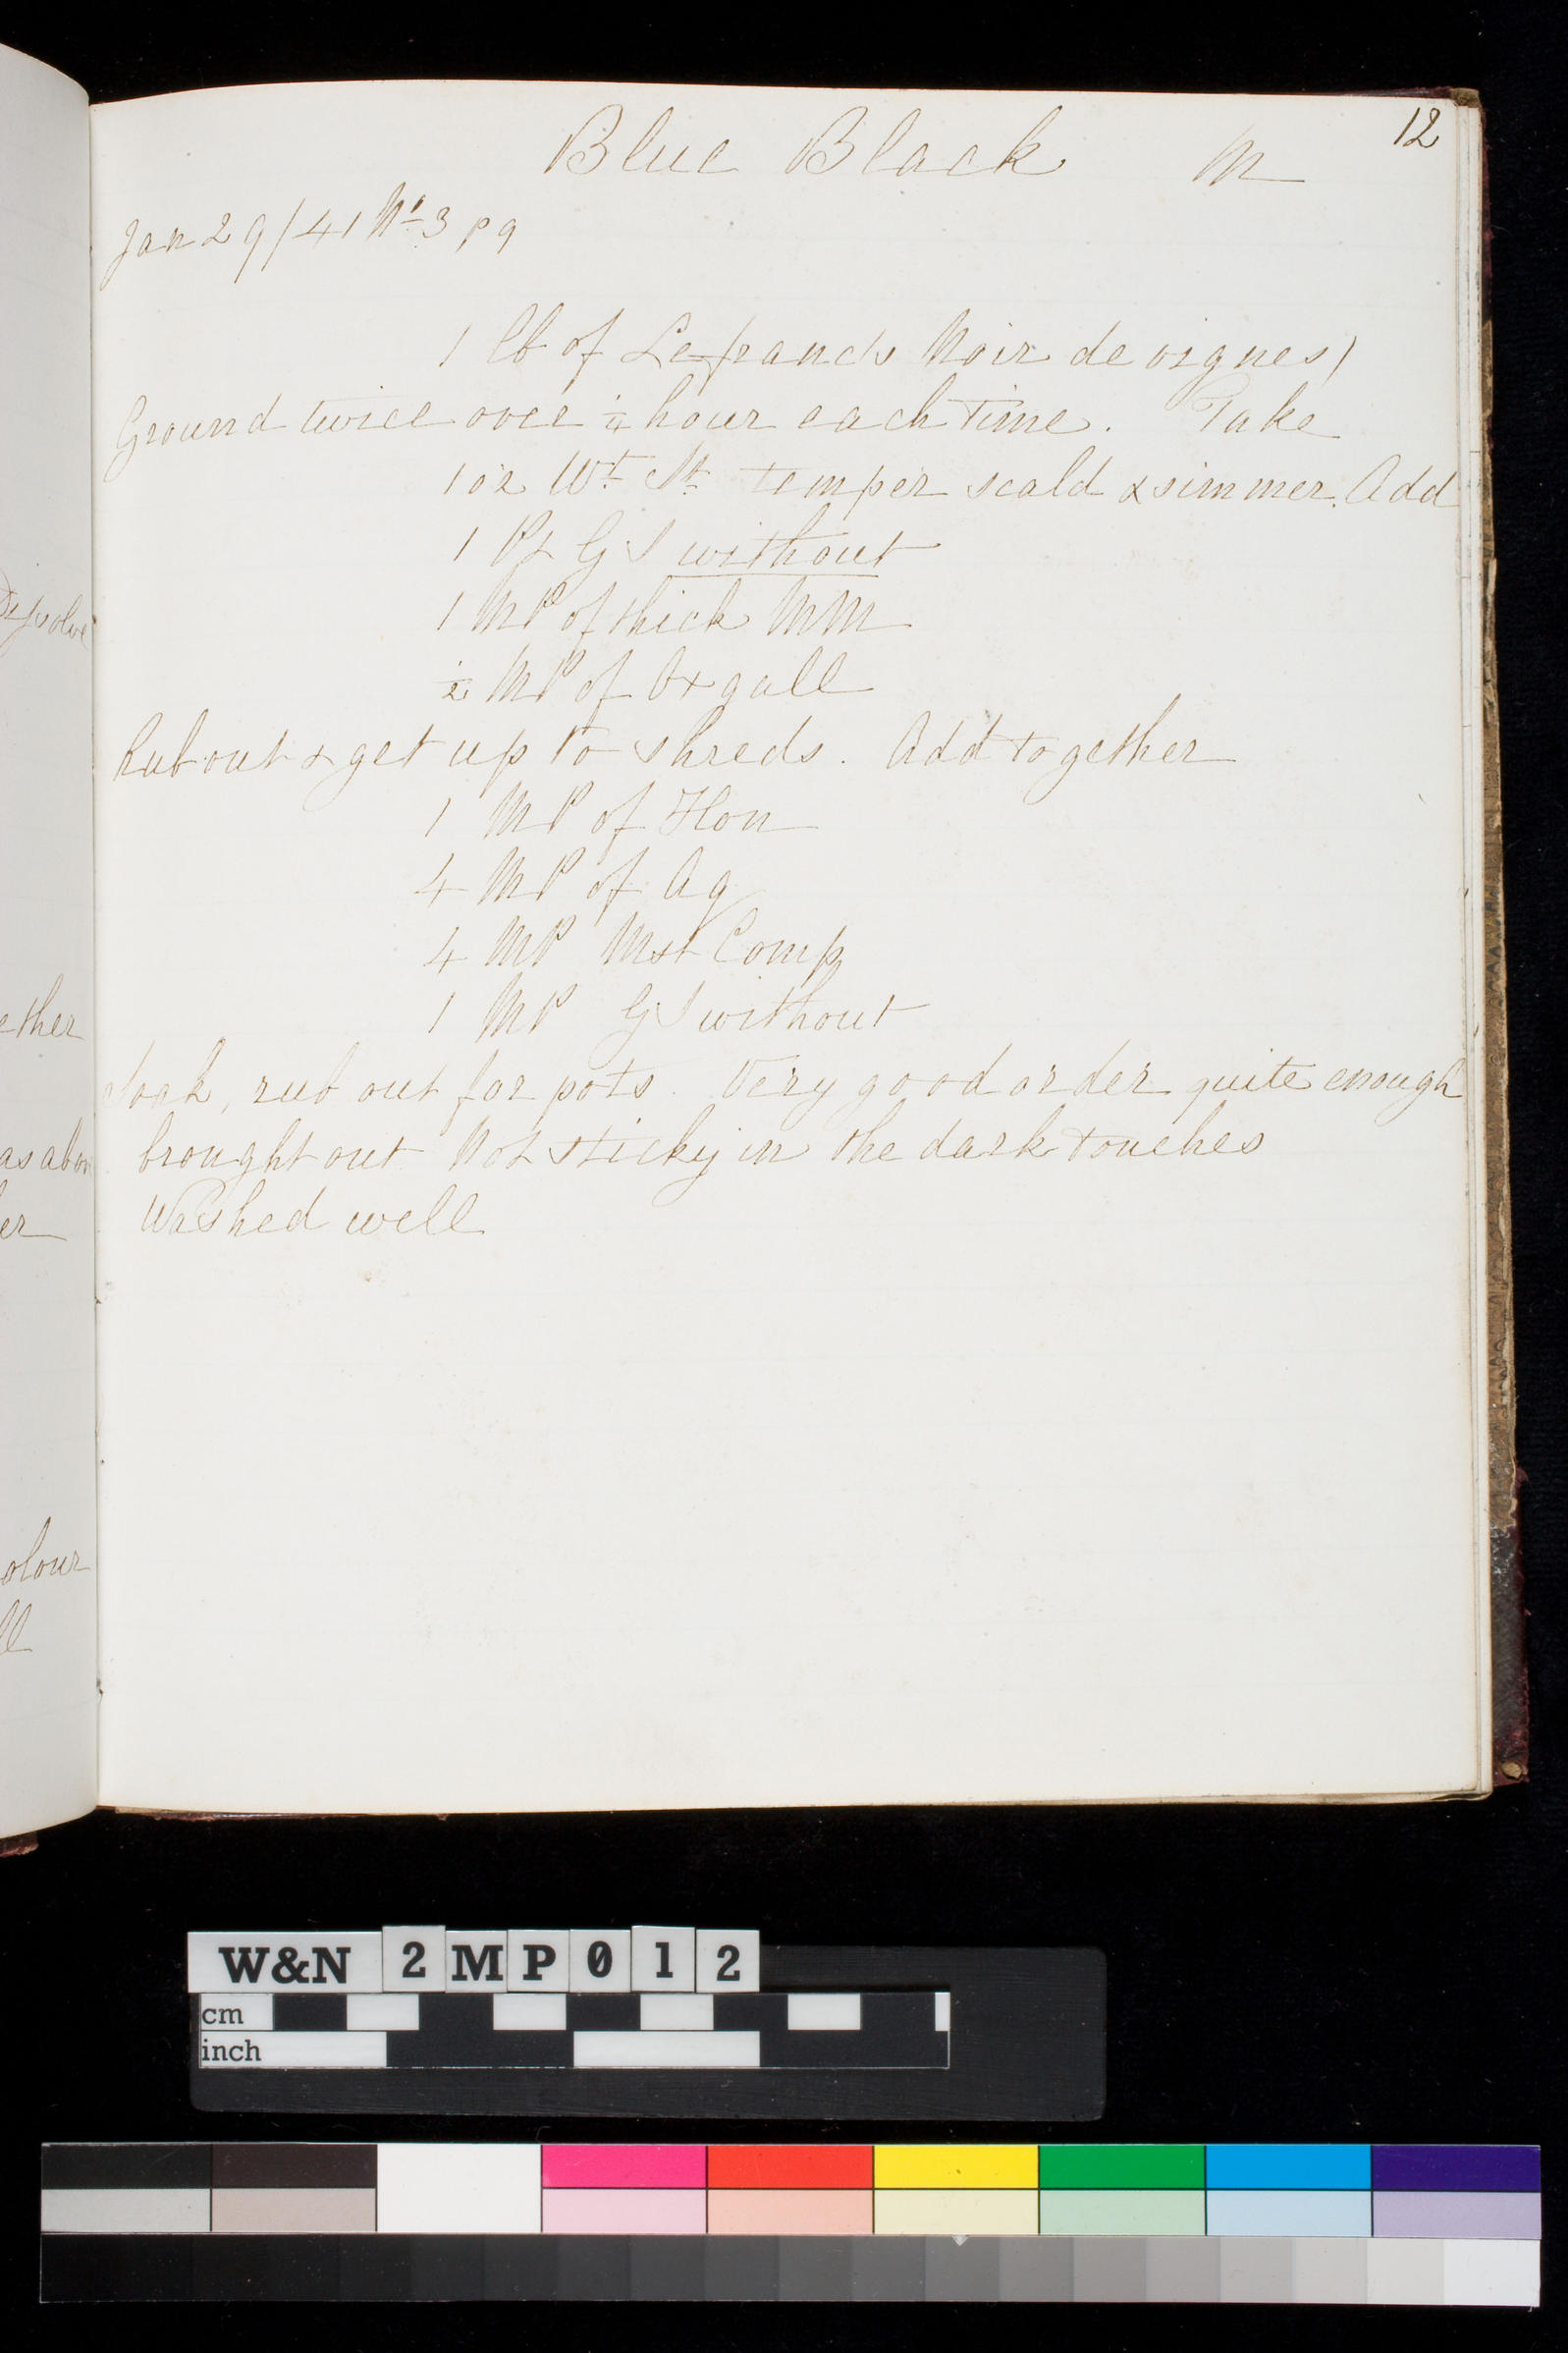 12
Blue Black M
Jan 29/41 No 3 p 9
1 lb of Lefrancs Noir de vignes)
Ground twice over ¼ hour each time. Take
1 oz Wt St temper scald & simmer. Add
1 Pt G S without
1 MP of thick MM
½ MP of Ox gall
Rub out & get up to shreds. Add together
1 MP of Hon
4 MP of Ag
4 MP Mst Comp
1 MP GS without
Soak, rub out for pots. Very good order quite enough
brought out Not sticky in the dark touches
Washed well
Dissolve
ether
as abov
er
olour
ll
W&N 2MP012
cm
inch